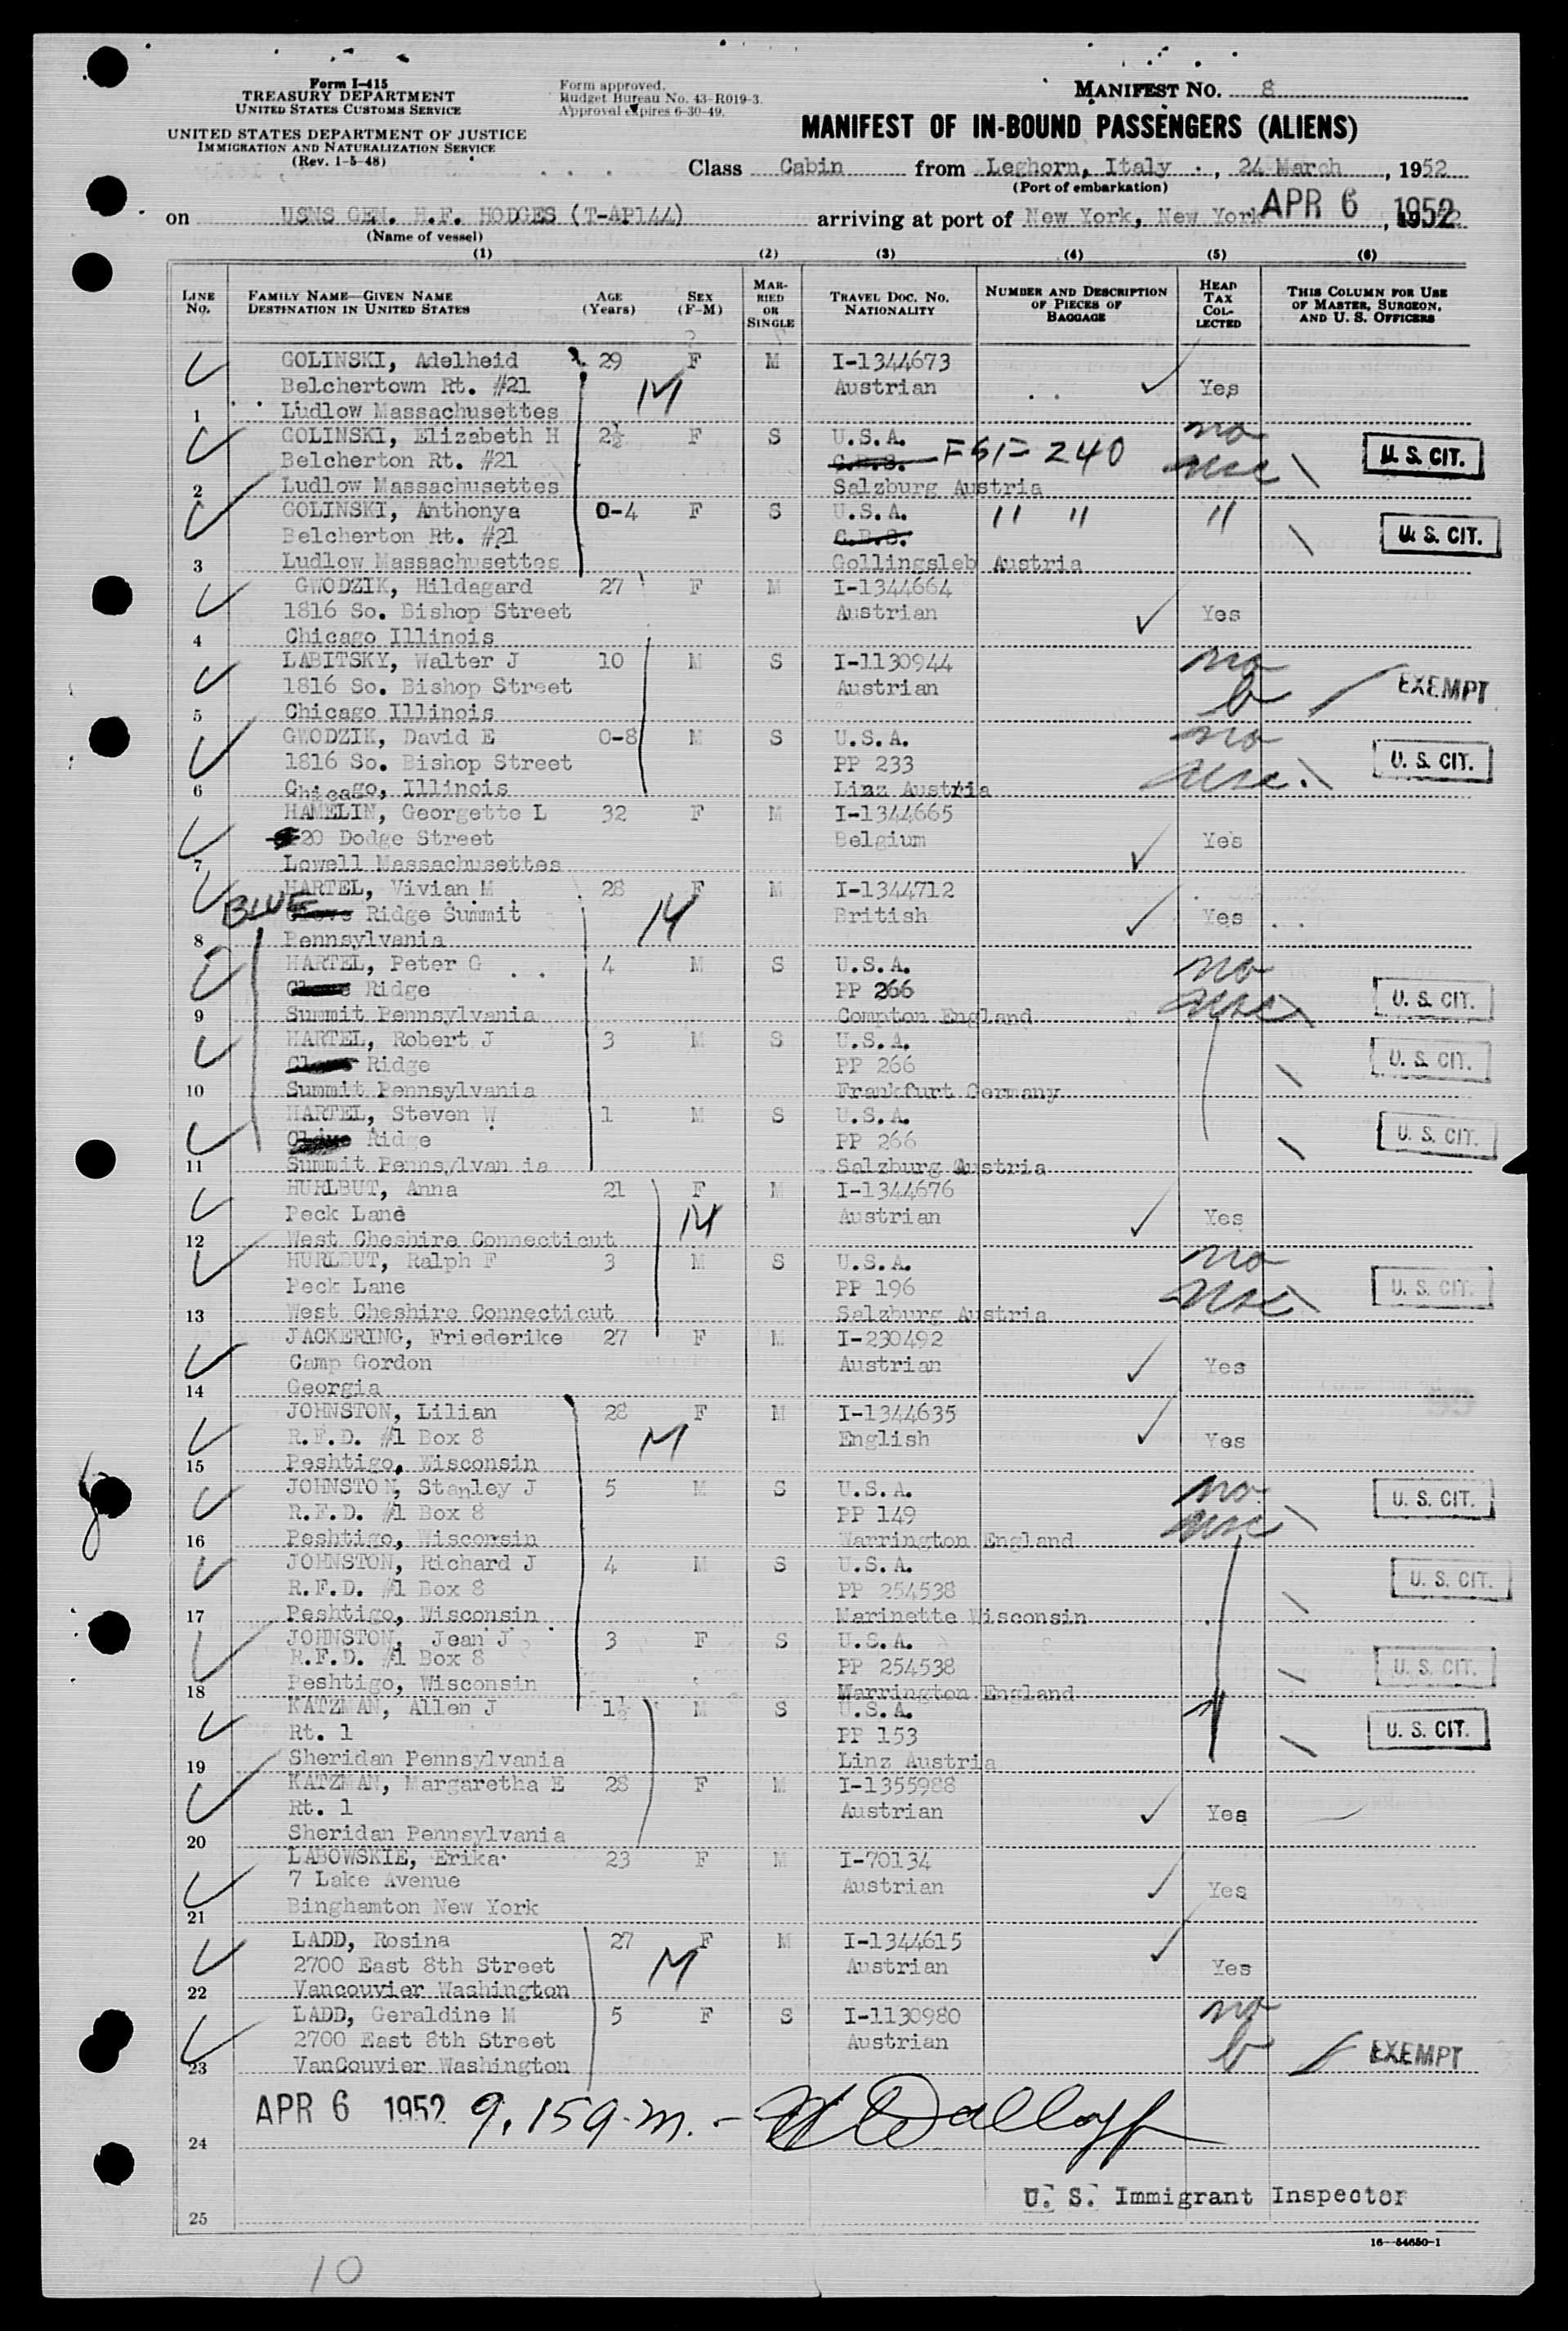 Form I-415
TREASURY DEPARTMENT
UNITED STATES CUSTOMS SERVICE
UNITED STATES DEPARTMENT OF JUSTICE
IMMIGRATION AND NATURALIZATION SERVICE
(Rev. 1-5-48)
Form approved.
Budget Bureau No. 43-R019-3.
Approval expires 6-30-49.
MANIFEST NO. 8
MANIFEST OF IN-BOUND PASSENGERS (ALIENS)
Class Cabin from Leghorn, Italy, 24 March, 1952
(Port of embarkation)
on USNS GEN. H.F. HODGES (T-AP144) arriving at port of New York, New York APR 6 1952
(Name of vessel)
(1) (2) (3) (4) (5) (6)
LINE NO. FAMILY NAME—GIVEN NAME DESTINATION IN UNITED STATES AGE (Years) SEX (F-M) MARRIED OR SINGLE TRAVEL DOC. NO. NATIONALITY NUMBER AND DESCRIPTION OF PIECES OF BAGGAGE HEAD TAX COLLECTED THIS COLUMN FOR USE OF MASTER, SURGEON, AND U. S. OFFICERS
GOLINSKI, Adelheid 29 F M I-1344673
Belchertown Rt. #21 M Austrian Yes
1 Ludlow Massachusettes
GOLINSKI, Elizabeth H 2½ F S U.S.A. no
Belcherton Rt. #21 C.B.S. FSI- 240 usc U. S. CIT.
2 Ludlow Massachusettes Salzburg Austria
GOLINSKI, Anthonya 0-4 F S U.S.A. " " "
Belcherton Rt. #21 C.B.S. U. S. CIT.
3 Ludlow Massachusettes Gollingsleb Austria
GWODZIK, Hildagard 27 F M I-1344664
1816 So. Bishop Street Austrian Yes
4 Chicago Illinois
LABITSKY, Walter J 10 M S I-1130944 no
1816 So. Bishop Street Austrian b EXEMPT
5 Chicago Illinois
GWODZIK, David E 0-8 M S U.S.A. no
1816 So. Bishop Street PP 233 usc. U. S. CIT.
6 Chicago, Illinois Linz Austria
HAMELIN, Georgette L 32 F M I-1344665
20 Dodge Street Belgium Yes
7 Lowell Massachusettes
HARTEL, Vivian M 28 F M I-1344712
BLUE Ridge Summit M British Yes
8 Pennsylvania
HARTEL, Peter G 4 M S U.S.A. no
Ridge PP 266 usc U. S. CIT.
9 Summit Pennsylvania Compton England
HARTEL, Robert J 3 M S U.S.A.
Ridge PP 266 U. S. CIT.
10 Summit Pennsylvania Frankfurt Germany
HARTEL, Steven W 1 M S U.S.A.
Ridge PP 266 U. S. CIT.
11 Summit Pennsylvan ia Salzburg Austria
HURLBUT, Anna 21 F M I-1344676
Peck Lane M Austrian Yes
12 West Cheshire Connecticut
HURLBUT, Ralph F 3 M S U.S.A. no
Peck Lane PP 196 usc U. S. CIT.
13 West Cheshire Connecticut Salzburg Austria
JACKERING, Friederike 27 F M I-230492
Camp Gordon Austrian Yes
14 Georgia
JOHNSTON, Lilian 28 F M I-1344635
R.F.D. #1 Box 8 M English Yes
15 Peshtigo, Wisconsin
JOHNSTON, Stanley J 5 M S U.S.A. no
R.F.D. #1 Box 8 PP 149 usc U. S. CIT.
16 Peshtigo, Wisconsin Warrington England
JOHNSTON, Richard J 4 M S U.S.A.
R.F.D. #1 Box 8 PP 254538 U. S. CIT.
17 Peshtigo, Wisconsin Marinette Wisconsin
JOHNSTON, Jean J 3 F S U.S.A.
R.F.D. #1 Box 8 PP 254538 U. S. CIT.
18 Peshtigo, Wisconsin Warrington England
KATZMAN, Allen J 1½ M S U.S.A. "
Rt. 1 PP 153 U. S. CIT.
19 Sheridan Pennsylvania Linz Austria
KATZMAN, Margaretha E 28 F M I-1355988
Rt. 1 Austrian Yes
20 Sheridan Pennsylvania
LABOWSKIE, Erika 23 F M I-70134
7 Lake Avenue Austrian Yes
21 Binghamton New York
LADD, Rosina 27 F M I-1344615
2700 East 8th Street M Austrian Yes
22 Vancouvier Washington
LADD, Geraldine M 5 F S I-1130980 no
2700 East 8th Street Austrian b EXEMPT
23 VanCouvier Washington
APR 6 1952 9.15 a.m. -
24
U. S. Immigrant Inspector
25
16—54650-1
10